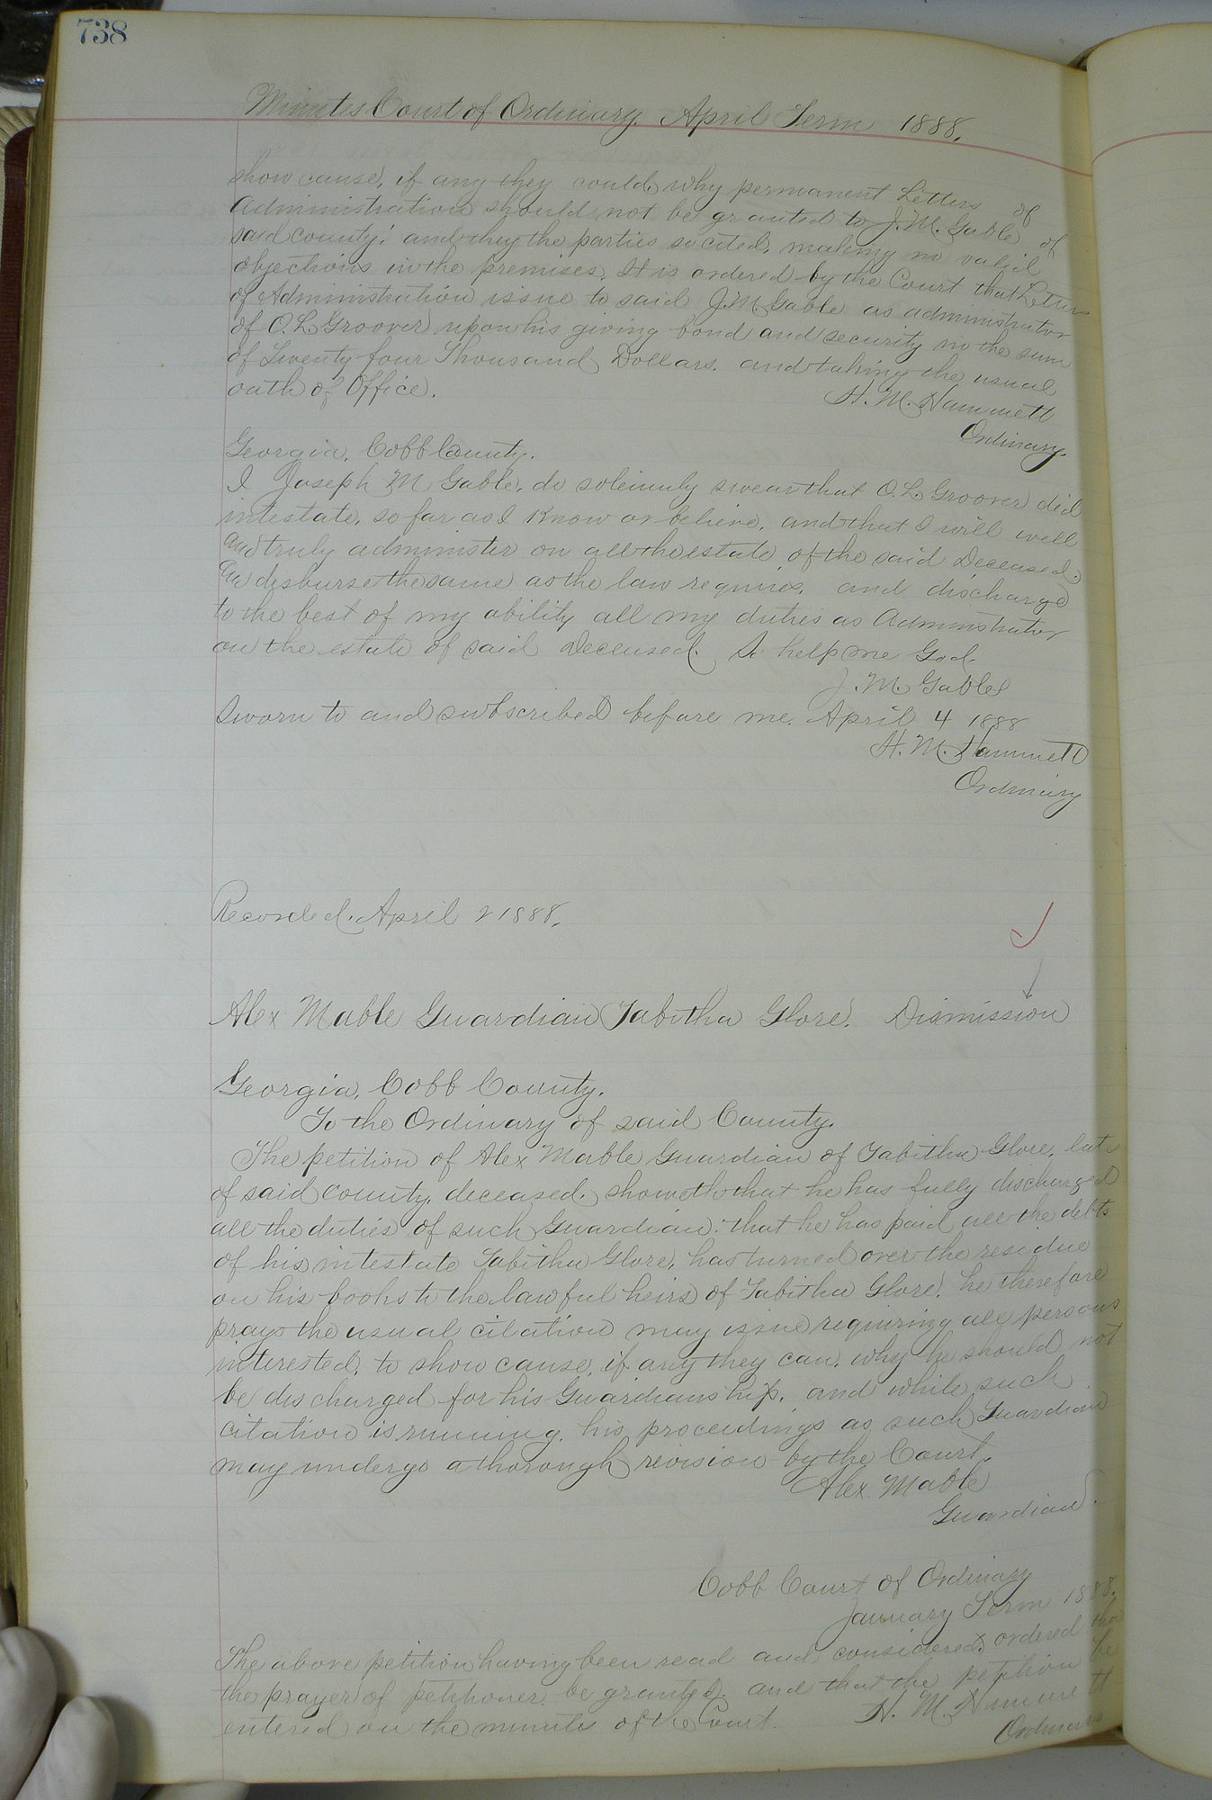 738
Minutes Court of Ordinary April Term 1888.
show cause, if any they could, why permanent Letters of
Administration should not be granted to J. M. Gable of
said county; and they the parties so cited, making no valid
objections in the premises. It is ordered by the Court that Letters
of Administration issue to said J. M. Gable as administrator
of O. L. Groover upon his giving bond and security in the sum
of Twenty four Thousand Dollars. and taking the usual
oath of Office.
H. M. Hammett
Ordinary.
Georgia, Cobb County.
I Joseph M Gable, do solemnly swear that O. L. Groover did
intestate, so far as I know or believe, and that I will well
and truly administer on all the estate of the said Deceased.
disburse the same as the law requires, and discharge
to the best of my ability all my duties as Administrator
on the estate of said Deceased. So help me God.
J. M. Gable
Sworn to and subscribed before me. April 4 1888
H. M. Hammett
Ordinary
Recorded. April 2 1888.
Alex Mable Guardian Tabitha Glore. Dismission
Georgia, Cobb County.
To the Ordinary of said County.
The petition of Alex Mable Guardian of Tabitha Glore, late
of said county, deceased. showeth that he has fully discharged
all the duties of such Guardian: that he has paid all the debts
of his intestate Tabitha Glore, has turned over the residue
on his books to the lawful heirs of Tabitha Glore. he therefore
prays the usual citation may issue requiring all persons
interested, to show cause, if any they can, why he should not
be discharged for his Guardianship. and while such
citation is running, his proceedings as such Guardian
may undergo a thorough revision by the Court.
Alex Mable
Guardian.
Cobb Court of Ordinary
January Term 1888.
The above petition having been read and considered, ordered that
the prayer of petitioner be granted, and that the petition be
entered on the minutes of the Court.
H. M. Hammett
Ordinary